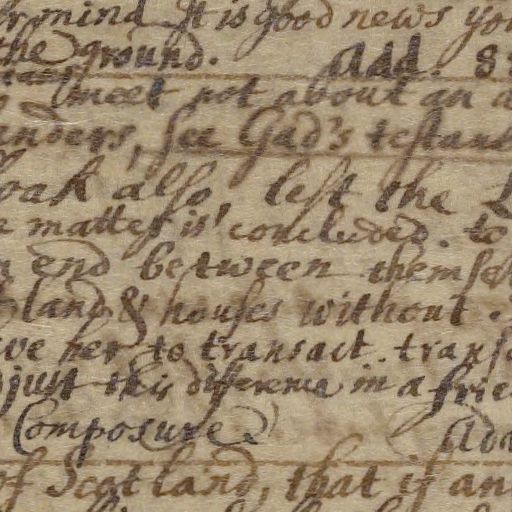 mind It is good news yo
the ground. Add. 8
meet not about an a
anders, see Gad's testam
oak also, lest the
matter is concluded. to
end between themsel
land & houses without.
ve her to transact. trans
just this difference in a frie
Composure Add
of Scotland, that if an